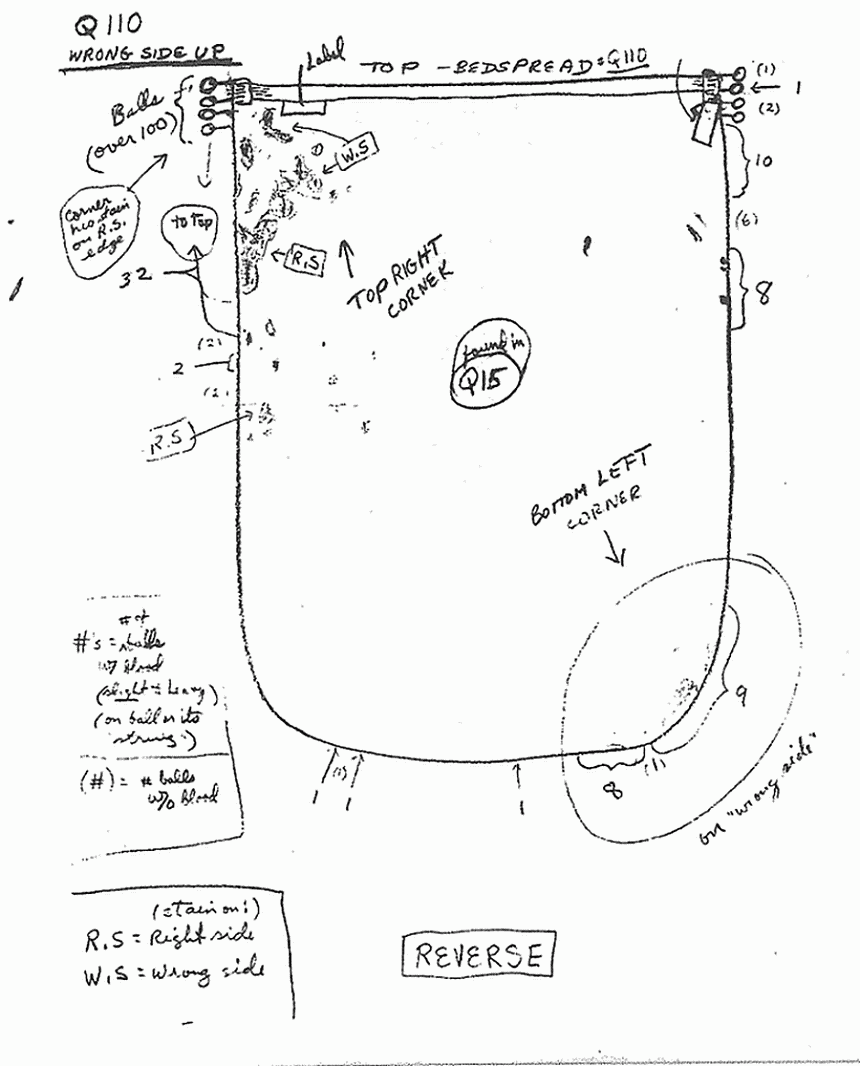 Q 110
WRONG SIDE UP
Label
TOP - BEDSPREAD = Q110
Balls
(over 100)
(1)
1
(2)
10
W.S
Corner
has stain
on R.S.
edge
to Top
32
R.S
TOP RIGHT
CORNER
(6)
8
(2)
2
(2)
found in
Q115
R.S
BOTTOM LEFT
CORNER
# of
#'s = balls
w/ blood
(slight = heavy)
(on ball or its
"string")
(#) = # balls
w/o blood
9
(1)
8
1
(1)
1
1
on "wrong side"
(stain on:)
R.S = Right side
W.S = Wrong side
REVERSE